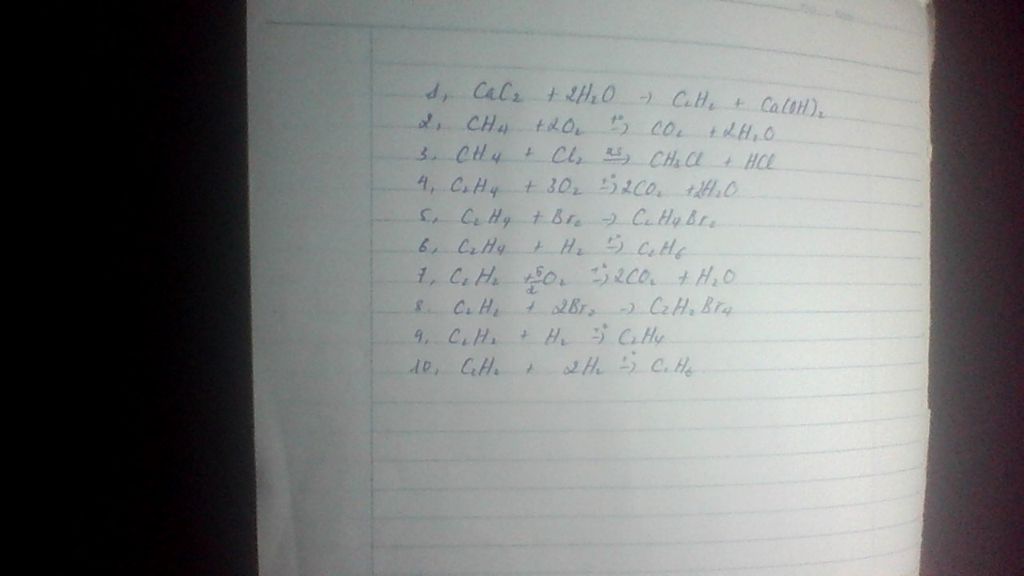 1, CaC2 + 2H2O → C2H2 + Ca(OH)2
2, CH4 + 2O2 t°→ CO2 + 2H2O
3, CH4 + Cl2 as→ CH3Cl + HCl
4, C2H4 + 3O2 t°→ 2CO2 + 2H2O
5, C2H4 + Br2 → C2H4Br2
6, C2H4 + H2 t°→ C2H6
7, C2H2 + 5/2O2 t°→ 2CO2 + H2O
8. C2H2 + 2Br2 → C2H2Br4
9, C2H2 + H2 t°→ C2H4
10, C2H2 + 2H2 t°→ C2H6